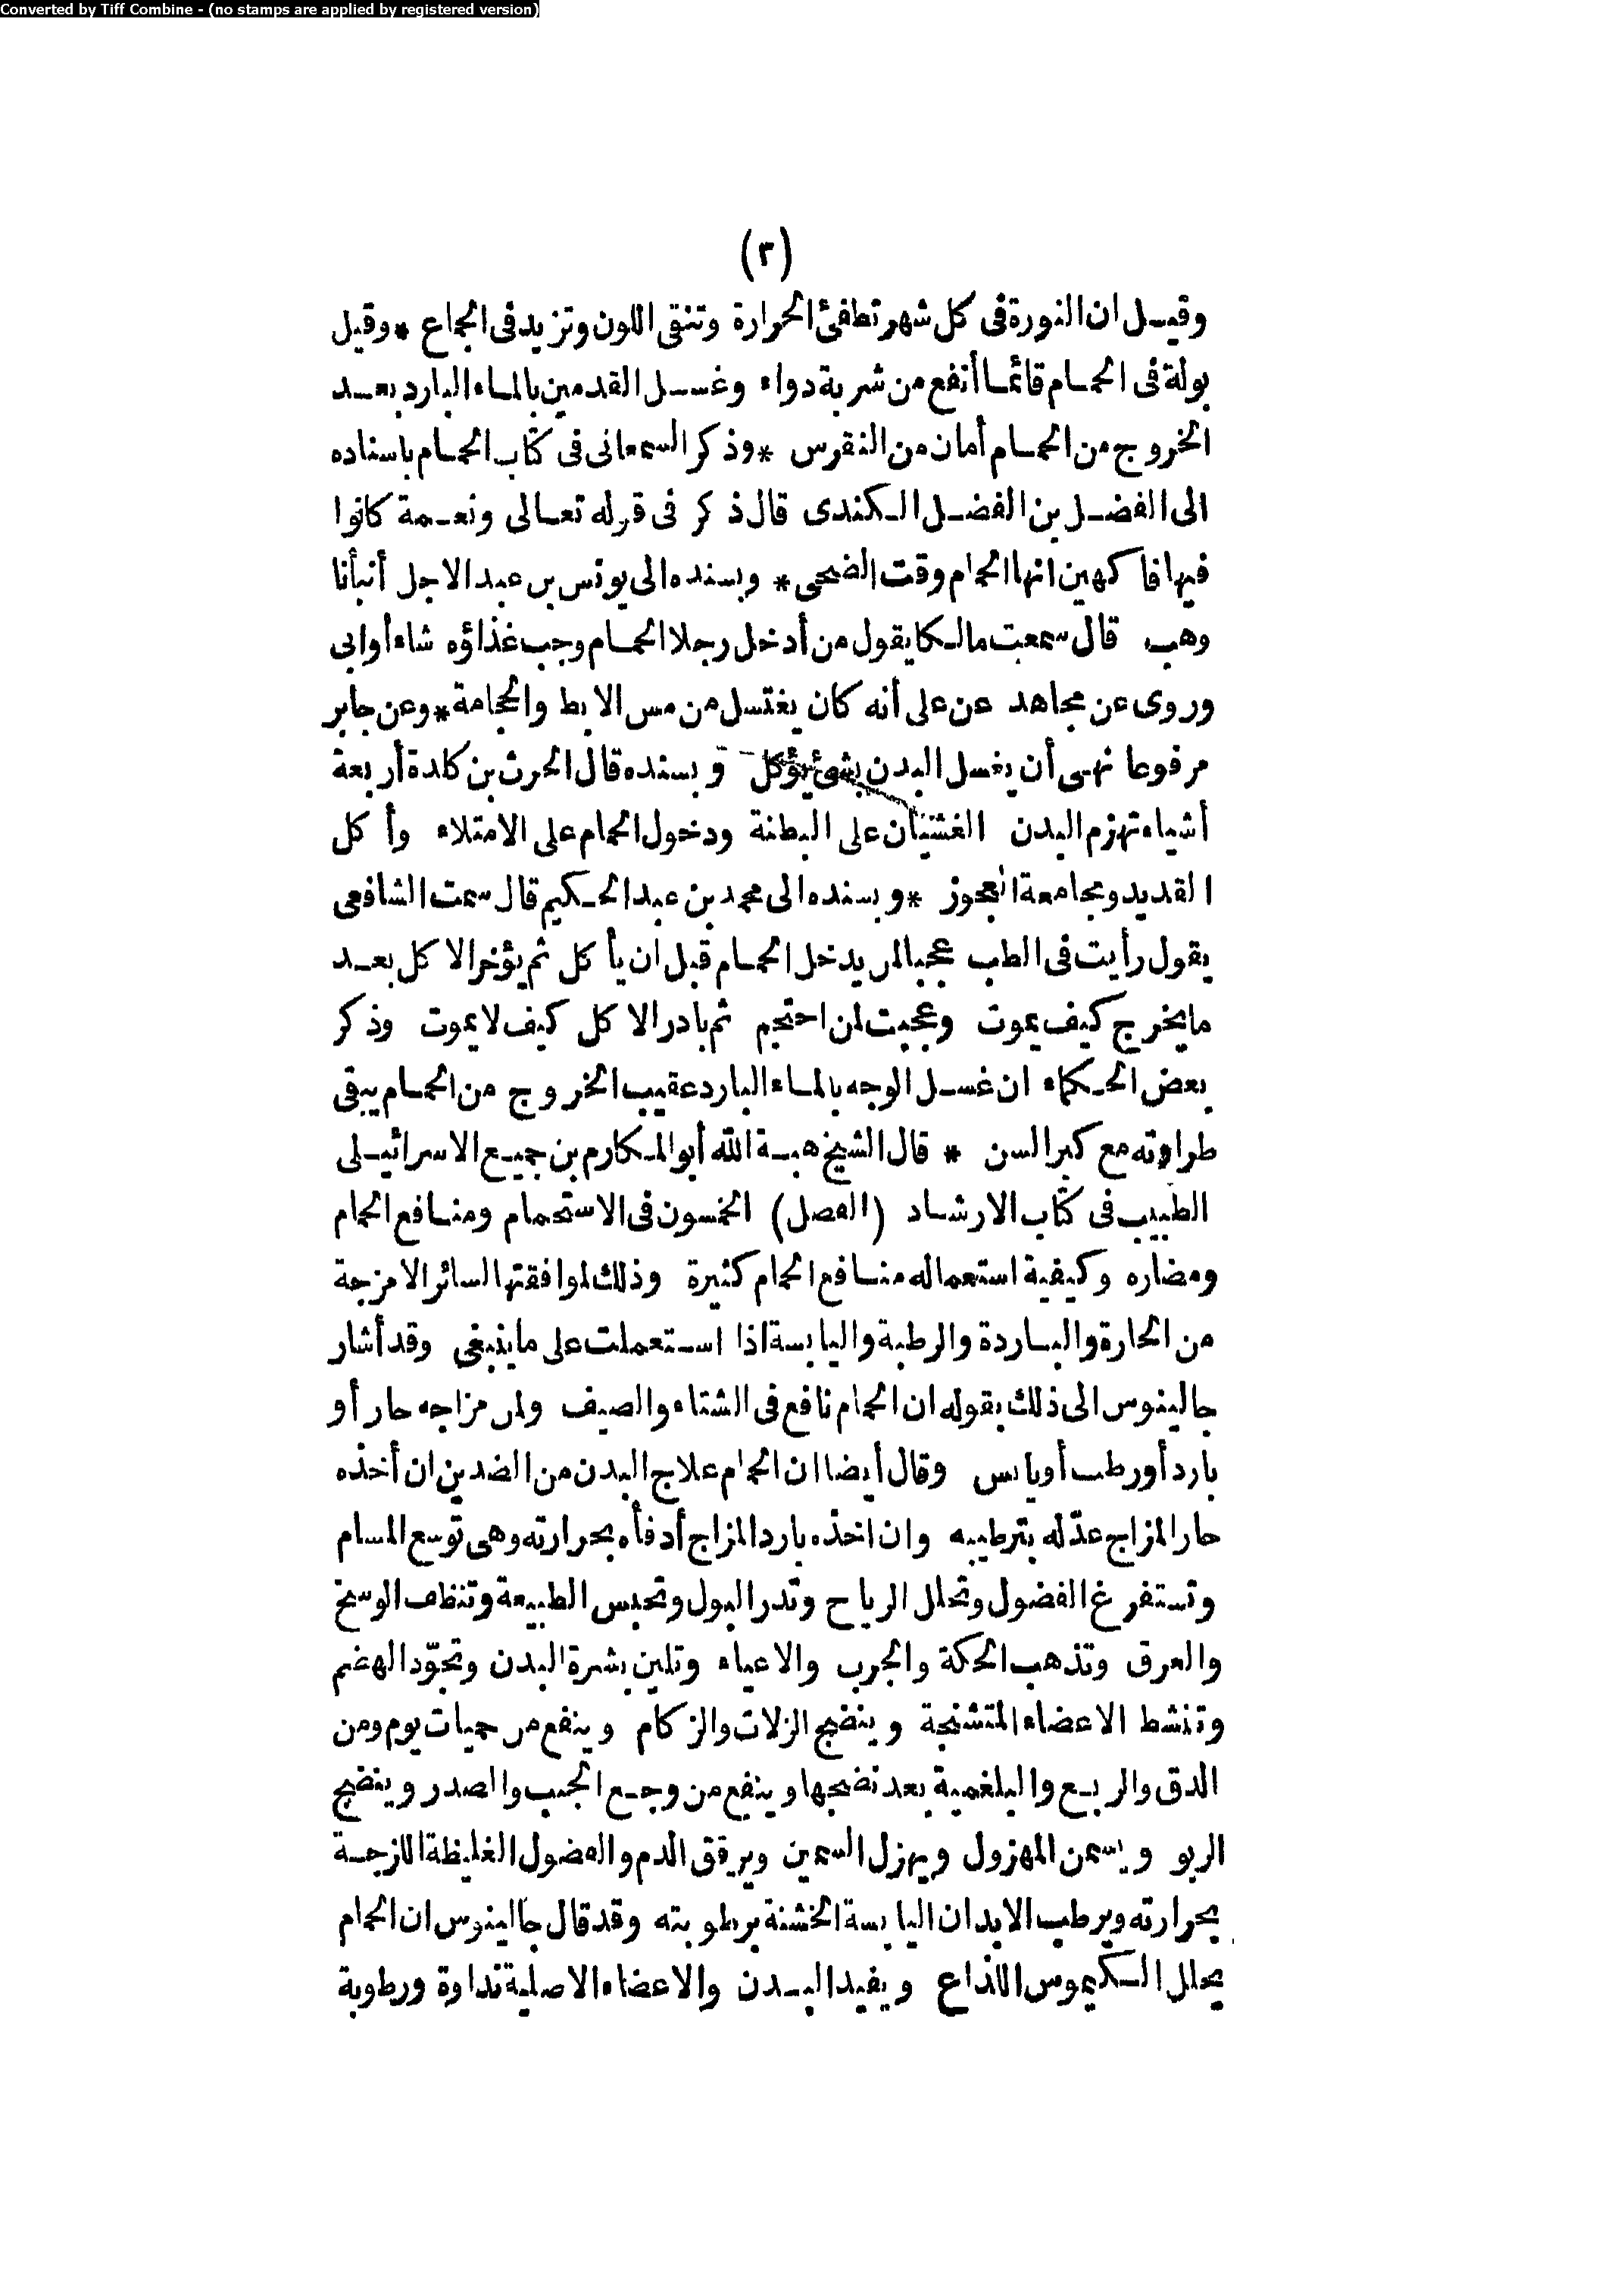 Converted by Tiff Combine - (no stamps are applied by registered version)
(٣)
وقيل ان النورة فى كل شهر تطفئ الحرارة وتنقى اللون وتزيد فى الجماع * وقيل
بولة فى الحمام قائما أنفع من شربة دواء وغسل القدمين بالماء البارد بعد
الخروج من الحمام أمان من النقرس * وذكر السمعانى فى كتاب الحمام باسناده
الى الفضل بن الفضل الكندى قال ذكر فى قوله تعالى ونعمة كانوا
فيها فاكهين انها الحمام وقت الضحى * وبسنده الى يونس بن عبد الاجل أنبأنا
وهب قال سمعت مالكا يقول من أدخل رجلا الحمام وجب غذاؤه شاء أو ابى
وروى عن مجاهد عن على أنه كان يغتسل من مس الابط والحجامة * وعن جابر
مرفوعا نهى أن يغسل البدن بشئ يؤكل وبسنده قال الحرث بن كلدة أربعة
أشياء تهزم البدن الغشيان على البطنة ودخول الحمام على الامتلاء وأكل
القديد ومجامعة العجوز * وبسنده الى محمد بن عبد الحكيم قال سمعت الشافعى
يقول رأيت فى الطب عجبا لمن يدخل الحمام قبل ان يأكل ثم يؤخر الاكل بعد
ما يخرج كيف يموت وعجبت لمن احتجم ثم بادر الاكل كيف لا يموت وذكر
بعض الحكماء ان غسل الوجه بالماء البارد عقيب الخروج من الحمام يبقى
طراوته مع كبر السن * قال الشيخ هبة الله أبو المكارم بن جميع الاسرائيلى
الطبيب فى كتاب الارشاد (الفصل) الخمسون فى الاستحمام ومنافع الحمام
ومضاره وكيفية استعماله منافع الحمام كثيرة وذلك لموافقتها لسائر الامزجة
من الحارة والباردة والرطبة واليابسة اذا استعملت على ما ينبغى وقد أشار
جالينوس الى ذلك بقوله ان الحمام نافع فى الشتاء والصيف ولمن مزاجه حار أو
بارد أو رطب أو يابس وقال أيضا ان الحمام علاج البدن من الضدين ان أخذه
حار المزاج عدّله بترطيبه وان اخذه بارد المزاج أدفأه بحرارته وهى توسع المسام
وتستفرغ الفضول وتحلل الرياح وتدر البول وتحبس الطبيعة وتنظف الوسخ
والعرق وتذهب الحكة والجرب والاعياء وتلين بشرة البدن وتجوّد الهضم
وتنشط الاعضاء المتشنجة وينضج النزلات والزكام وينفع من حميات يوم ومن
الدق والربع والبلغمية بعد نضجها وينفع من وجع الجنب والصدر وينضج
الربو ويسمن المهزول ويهزل السمين ويرقق الدم والفضول الغليظة اللزجة
بحرارته ويرطب الابدان اليابسة الخشنة برطوبته وقد قال جالينوس ان الحمام
يحلل الكيموس اللذاع ويفيد البدن والاعضاء الاصلية نداوة ورطوبة